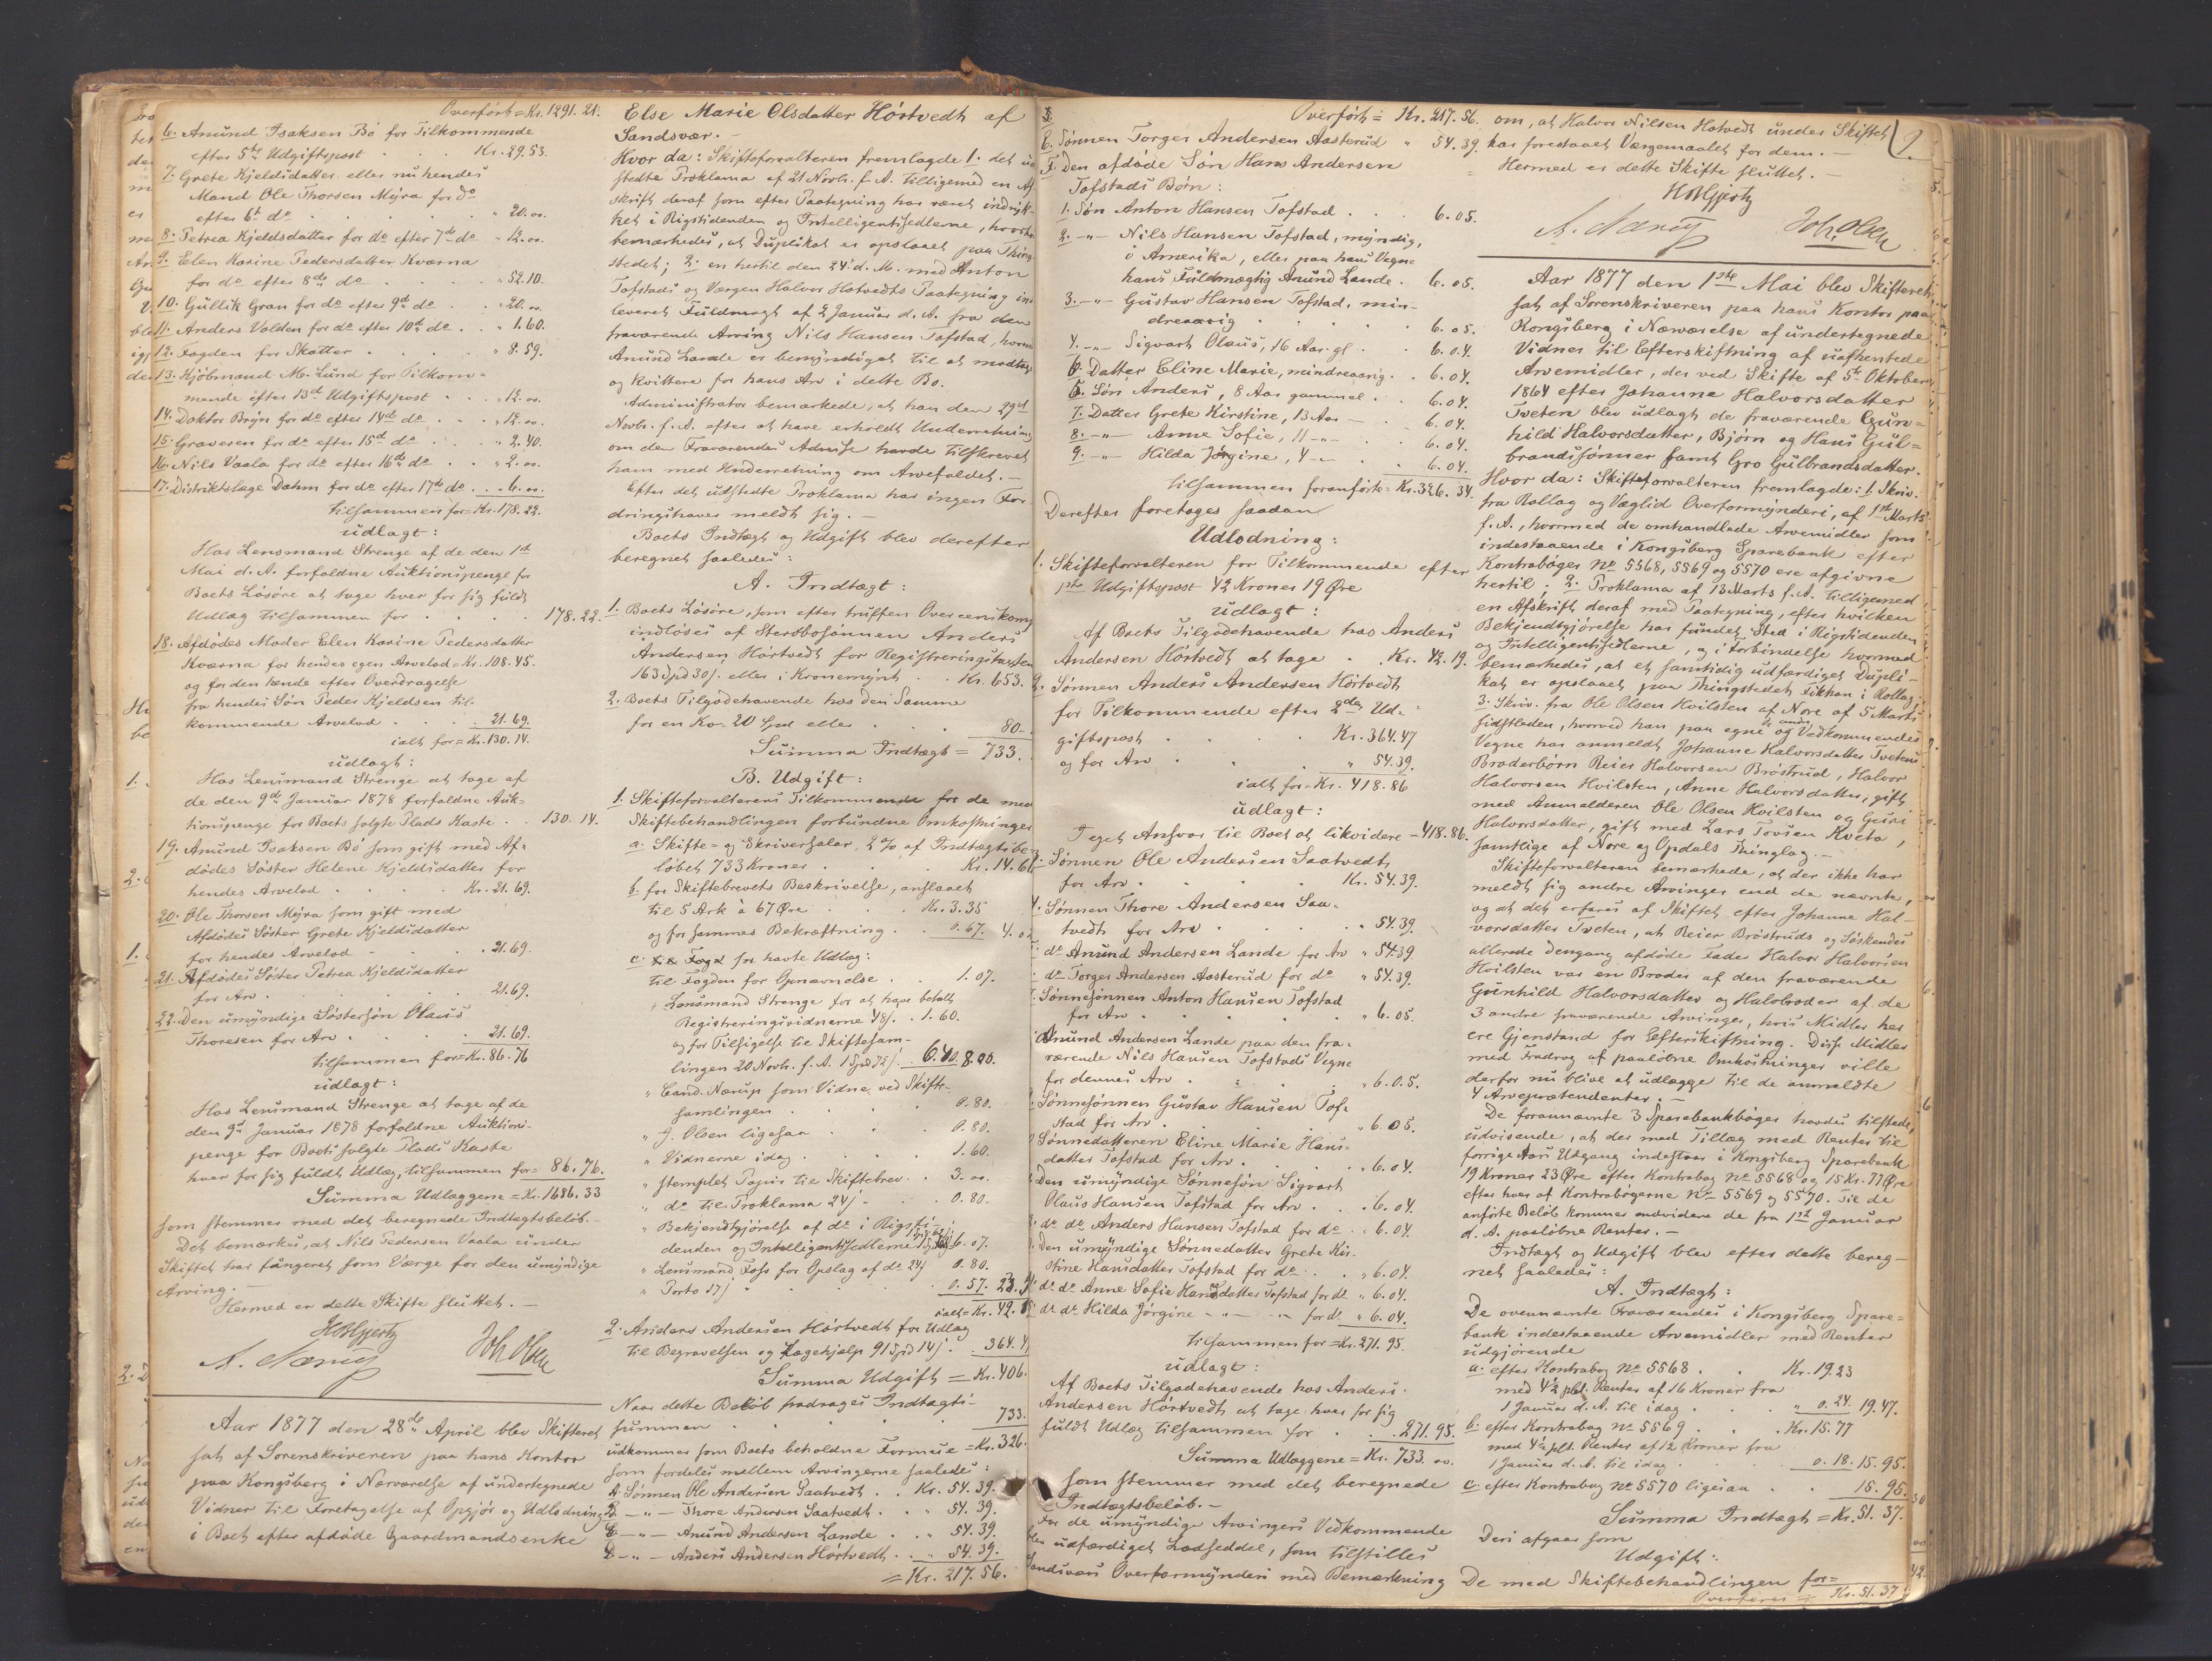 Overført = Kr. 1291. 21.
6. Anund Isaksen Bö for Tilkommende
efter 5te Udgiftspost . . . Kr. 29. 53.
7. Grete Kjeldsdatter eller nu hendes
Mand Ole Thorsen Myra for do
efter 6te do . . . " 20. oo.
8. Petrea Kjeldsdatter for do efter 7de do " 12. oo.
9. Elen Karine Pedersdatter Kværna
for do efter 8de do . . . " 52. 10.
10. Gullik Gran for do efter 9de do . . " 20. oo.
11. Anders Volden for do efter 10de do . . " 1. 60.
12. Fogden for Skatter . . . " 8. 59.
13. Kjöbmand M. Lund for Tilkom-
mende efter 13de Udgiftspost . . " 12. oo.
14. Doktor Bryn for do efter 14de do . . " 12. oo.
15. Graveren for do efter 15de do . . " 2. 40.
16. Nils Vaala for do efter 16de do . . " 2. oo.
17. Distriktslæge Dahm for do efter 17de do . . " 6. oo.
tilsammen for = Kr. 178. 22.
udlagt:
Hos Lensmand Strenge af de den 1ste
Mai d. A. forfaldne Auktionspenge for
Boets Lösöre at tage hver for sig fuldt
Udlæg tilsammen for . . . 178. 22.
18. Afdödes Moder Elen Karine Pedersdatter
Kværna for hendes egen Arvelod = Kr. 108. 45.
og for den hende efter Overdragelse
fra hendes Sön Peder Kjeldsen til-
kommende Arvelod . . . 21. 69.
ialt for = Kr. 130. 14.
udlagt:
Hos Lensmand Strenge at tage af
de den 9de Januar 1878 forfaldne Auk-
tionspenge for Boets solgte Plads Kaste . . 130. 14.
19. Anund Isaksen Bö som gift med Af-
dödes Söster Helene Kjeldsdatter for
hendes Arvelod . . . Kr. 21. 69.
20. Ole Thorsen Myra som gift med
Afdödes Söster Grete Kjeldsdatter
for hendes Arvelod . . . 21. 69.
21. Afdödes Söster Petrea Kjeldsdatter
for Arv . . . 21. 69.
22. Den umyndige Söstersön Olaus
Thoresen for Arv . . . 21. 69.
tilsammen for = Kr. 86. 76
udlagt:
Hos Lensmand Strenge at tage af de
den 9de Januar 1878 forfaldne Auktions-
penge for Boets solgte Plads Kaste
hver for sig fuldt Udlæg, tilsammen for = 86. 76.
Summa Udlæggene = Kr. 1686. 33
som stemmer med det beregnede Indtægtsbelöb.
Det bemærkes, at Nils Pedersen Vaala under
Skiftet har fungeret som Værge for den umyndige
Arving.
Hermed er dette Skifte sluttet. —
HHHjertz
A. Nærup Joh. Olsen
Aar 1877 den 28de April blev Skifteret
sat af Sorenskriveren paa hans Kontor
paa Kongsberg i Nærværelse af undertegnede
Vidner til Foretagelse af Opgjör og Udlodning
i Boet efter afdöde Gaardmandsenke
Else Marie Olsdatter Hörtvedt af
Sandsvær. —
Hvor da: Skifteforvalteren fremlagde 1. det ud-
stedte Proklama af 21 Novb. f. A. tilligemed en Af-
skrift deraf som efter Paategning har været indryk-
ket i Rigstidenden og Intelligentssedlerne, hvorhos
bemærkedes, at Duplikat er opslaaet paa Thing-
stedet; 2. en hertil den 24. d. M. med Anton
Tofstads og Værgen Halvor Hotvedts Paategning ind-
leveret Fuldmagt af 2 Januar d. A. fra den
fraværende Arving Nils Hansen Tofstad, hvorved
Anund Lande er bemyndiget til at modtage
og kvittere for hans Arv i dette Bo.
Administrator bemærkede, at han den 29de
Novb. f. A. efter at have erholdt Underretning
om den Fraværendes Adresse havde tilskrevet
ham med Underretning om Arvefaldet. —
Efter det udstedte Proklama har ingen For-
dringshaver meldt sig. —
Boets Indtægt og Udgift blev derefter
beregnet saaledes:
A. Indtægt:
1. Boets Lösöre, som efter truffen Overeenskomst
indlöses af Stervbosönnen Anders
Andersen Hörtvedt for Registreringstaxten
163 Spd 30 s. eller i Kronemynt . . Kr. 653.
2. Boets Tilgodehavende hos den Samme
for en Ko. 20 Spd eller . . . 80.
Summa Indtægt = 733.
B. Udgift:
1. Skifteforvalterens Tilkommende for de med
Skiftebehandlingen forbundne Omkostninger
a. Skifte- og Skriversalær, 2 % af Indtægtsbe-
löbet 733 Kroner . . . Kr. 14. 66
b. for Skiftebrevets Beskrivelse, anslaaet
til 5 Ark à 67 Øre . . Kr. 3. 35
og for sammes Bekræftning . . 0. 67. 4. 02
c. for havte Udlæg:
til Fogden for Opnævnelse . . . 1. 07.
" Lensmand Strenge for at have betalt
Registreringsvidnerne 48 s. . 1. 60.
og for Tilsigelse til Skiftesam-
lingen 20 Novb. f. A. 1 Spd 72 s. . 6. 40 8. 00.
" Cand. Nærup som Vidne ved Skifte-
samlingen . . . 0. 80.
" J. Olsen ligesaa . . . 0. 80.
" Vidnerne idag . . . 1. 60.
" stemplet Papir til Skiftebrev . . 3. oo.
" do til Proklama 24 s . . 0. 80.
" Bekjendtgjörelse af do i Rigsti-
denden og Intelligentssedlerne 6. 07.
" Lensmand Foss for Opslag af do 24 s 0. 80.
" Porto 17 s . . . 0. 57. 23.
ialt = Kr. 42.
2. Anders Andersen Hörtvedt for Udlæg
til Begravelsen og Lægehjælp 91 Spd 14 s . . 364. 47
Summa Udgift = Kr. 406.
Naar dette Belöb fradrages Indtægts-
summen . . . 733.
udkommer som Boets beholdne Formue = Kr. 326.
som fordeles mellem Arvingerne saaledes:
A. Sönnen Ole Andersen Saatvedt . . Kr. 54. 39.
B. — " — Thore Andersen Saatvedt . . " 54. 39.
C. — " — Anund Andersen Lande . . " 54. 39.
D. — " — Anders Andersen Hörtvedt . . " 54. 39.
= Kr. 217. 56.
Overført = Kr. 217. 56.
E. Sönnen Torger Andersen Aasterud " 54. 39.
F. Den afdöde Sön Hans Andersen
Tofstads Börn:
1. Sön Anton Hansen Tofstad . . . 6. 05.
2. — " — Nils Hansen Tofstad, myndig,
i Amerika, eller paa hans Vegne
hans Fuldmægtig Anund Lande . 6. 05.
3. — " — Gustav Hansen Tofstad, min-
dreaarig . . . 6. 05.
4. — " — Sigvart Olaus, 16 Aar gl . . 6. 04.
5. Datter Eline Marie, mindreaarig . . 6. 04.
6. Sön Anders, 8 Aar gammel . . 6. 04.
7. Datter Grete Kirstine, 13 Aar — . . 6. 04.
8. — " — Anne Sofie, 11 — " — . . 6. 04.
9. — " — Hilda Jörgine, 4 — " . . 6. 04.
tilsammen foranförte = Kr. 326. 34.
Derefter foretoges saadan
Udlodning:
1. Skifteforvalteren for Tilkommende efter
1ste Udgiftspost 42 Kroner 19 Øre
udlagt:
Af Boets Tilgodehavende hos Anders
Andersen Hörtvedt at tage . . Kr. 42. 19.
2. Sönnen Anders Andersen Hörtvedt
for Tilkommende efter 2den Ud-
giftspost . . . Kr. 364. 47
og for Arv . . . " 54. 39.
ialt for = Kr. 418. 86
udlagt:
I eget Ansvar til Boet at likvidere — 418. 86.
3. Sönnen Ole Andersen Saatvedt
for Arv . . . Kr. 54. 39.
4. Sönnen Thore Andersen Saa-
tvedt for Arv . . . " 54. 39.
do Anund Andersen Lande for Arv " 54. 39
do Torger Andersen Aasterud for do " 54. 39.
Sönnesönnen Anton Hansen Tofstad
for Arv . . . " 6. 05.
Anund Andersen Lande paa den fra-
værende Nils Hansen Tofstads Vegne
for dennes Arv . . . " 6. 0. 5.
Sönnesönnen Gustav Hansen Tof-
stad for Arv . . . " 6. 05.
Sönnedatteren Eline Marie Hans-
datter Tofstad for Arv . . . " 6. 04.
Den umyndige Sönnesön Sigvart
Olaus Hansen Tofstad for Arv . . " 6. 04.
do do Anders Hansen Tofstad for do . " 6. 04.
Den umyndige Sönnedatter Grete Kir-
stine Hansdatter Tofstad for do . . " 6. 04.
do do Anne Sofie Hansdatter Tofstad for do " 6. 04.
do do Hilda Jörgine — " — " for do " 6. 04.
tilsammen for = Kr. 271. 95.
udlagt:
Af Boets Tilgodehavende hos Anders
Andersen Hörtvedt at tage hver for sig
fuldt Udlæg tilsammen for . . . 271. 95.
Summa Udlæggene = Kr. 733. oo.
som stemmer med det beregnede
Indtægtsbelöb. —
For de umyndige Arvingers Vedkommende
blev udfærdiget Lodseddel, som tilstilles
Sandsværs Overformynderi med Bemærkning
om, at Halvor Nilsen Hotvedt under Skiftet
har forestaaet Værgemaalet for dem. —
Hermed er dette Skifte sluttet. —
HHHjertz
A. Nærup Joh. Olsen
9.
Aar 1877 den 1ste Mai blev Skifteret
sat af Sorenskriveren paa hans Kontor paa
Kongsberg i Nærværelse af undertegnede
Vidner til Efterskiftning af uafhentede
Arvemidler, der ved Skifte af 5te Oktober
1864 efter Johanne Halvorsdatter
Tveten blev udlagt de fraværende Gun-
hild Halvorsdatter, Björn og Hans Gul-
brandssönner samt Gro Gulbrandsdatter.
Hvor da: Skifteforvalteren fremlagde: 1. Skriv.
fra Rollag og Væglid Overformynderi, af 1ste Marts
f. A., hvormed de omhandlede Arvemidler som
indestaaende i Kongsberg Sparebank efter
Kontraböger No 5568, 5569 og 5570 ere afgivne
hertil; 2. Proklama af 13 Marts f. A. tilligemed
en Afskrift deraf med Paategning, efter hvilken
Bekjendtgjörelse har fundet Sted i Rigstidenden
og Intelligentssedlerne, og i Forbindelse hvormed
bemærkedes, at et samtidig udfærdiget Dupli-
kat er opslaaet paa Thingstedet Fikhan i Rollag;
3. Skriv. fra Ole Olsen Hvilsten af Nore af 5 Marts
sidstleden, hvorved han paa egne og Vedkommendes
Vegne har anmeldt Johanne Halvorsdatter Tvetens
Broderbörn Reier Halvorsen Bröstrud, Halvor
Halvorsen Hvilsten, Anne Halvorsdatter, gift
med Anmelderen Ole Olsen Hvilsten og Guri
Halvorsdatter, gift med Lars Tovsen Kveta,
samtlige af Nore og Opdals Thinglag. —
Skifteforvalteren bemærkede, at der ikke har
meldt sig andre Arvinger end de nævnte,
og at det erfares af Skiftet efter Johanne Hal-
vorsdatter Tveten, at Reier Bröstruds og Söskendes
allerede dengang afdöde Fader Halvor Halvorsen
Hvilsten var en Broder af den fraværende
Gunhild Halvorsdatter og Halvbroder af de
3 andre fraværende Arvinger, hvis Midler her
ere Gjenstand for Efterskiftning. Disse Midler
med Fradrag af paalöbne Omkostninger ville
derfor nu blive at udlægge til de anmeldte
4 Arveprætendenter. —
De forannævnte 3 Sparebankböger havdes tilstede
udvisende, at der med Tillæg med Renter til
forrige Aars Udgang indestaar i Kongsberg Sparebank
19 Kroner 23 Øre efter Kontrabog No 5568 og 15 Kr. 77 Øre
efter hver af Kontrabögerne No 5569 og 5570. Til de
anförte Belöb kommer endvidere de fra 1ste Januar
d. A. paalöbne Renter. —
Indtægt og Udgift blev efter dette bereg-
net saaledes:
A. Indtægt:
De ovennævnte Fraværendes i Kongsberg Spare-
bank indestaaende Arvemidler med Renter
udgjörende
a. efter Kontrabog No 5568 . . Kr. 19. 23
med 4½ pCt. Renter af 16 Kroner fra
1 Januar d. A. til idag . . . " 0. 24. 19. 47.
b. efter Kontrabog No 5569 . . Kr. 15. 77
med 4½ pCt. Renter af 12 Kroner fra
1 Januar d. A. til idag . . . 0. 18. 15. 95.
c. efter Kontrabog No 5570 ligesaa . . 15. 95.
Summa Indtægt = Kr. 51. 37.
Deri afgaar som
Udgift:
De med Skiftebehandlingen for-
Overföres = Kr. 51. 37